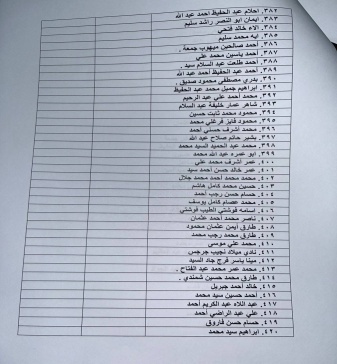 ٣٨٢. احلام عبد الحفيظ احمد عبد الله
٣٨٣. ايمان ابو النصر راشد سليم
٣٨٤. الاء خالد فتحي
٣٨٥. ايه محمد سليم
٣٨٦. احمد صالحين ميهوب جمعة .
٣٨٧. احمد ياسين محمد علي
٣٨٨. احمد طلعت عبد السلام سيد .
٣٨٩. احمد عبد الحفيظ احمد عبد الله
٣٩٠. بدري مصطفى محمود صديق .
٣٩١. ابراهيم جميل محمد عبد الحفيظ
٣٩٢. محمد احمد علي عبد الرحيم
٣٩٣. شاهر عمار خليفة عبد السلام
٣٩٤. محمود محمد ثابت حسين
٣٩٥. محمود فايز فرغلي محمد
٣٩٦. محمد اشرف حسني احمد
٣٩٧. بشير حاتم صلاح عبد الله
٣٩٨. محمد عبد الحميد السيد محمد
٣٩٩. ابو عمره عبد الله محمد
٤٠٠. عمر اشرف محمد علي
٤٠١. عمر خالد حسن احمد سيد
٤٠٢. محمد محمد احمد محمد جلال
٤٠٣. حسين محمد كامل هاشم
٤٠٤. حسام حسن رجب احمد
٤٠٥. محمد عصام كامل يوسف
٤٠٦. اسامه فوشتي الطيب فوشتي
٤٠٧. ناصر محمد احمد عثمان
٤٠٨. طارق ايمن عثمان محمود
٤٠٩. طارق محمد رجب محمد
٤١٠. محمد علي موسى
٤١١. نادي ميلاد نجيب جرجس
٤١٢. مينا ياسر فرج جاد السيد
٤١٣. محمد عمر محمد عبد الفتاح .
٤١٤. طارق محمد حسين شمندي .
٤١٥. خالد احمد جبريل
٤١٦. احمد حسين سيد محمد
٤١٧. عبد اللاه عبد الكريم احمد
٤١٨. علي عبد الراضي احمد
٤١٩. حسام حسن فاروق
٤٢٠. ابراهيم سيد محمد